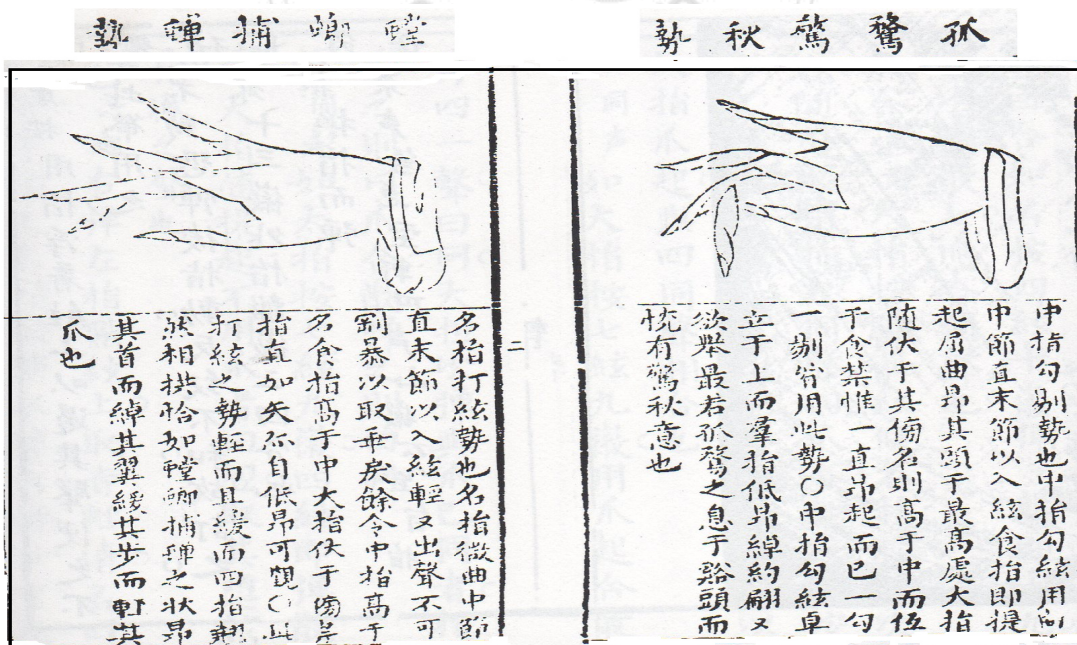 孤鶩驚秋勢
中指勾剔勢也中指勾絃用
中節直末節以入絃食指即提
起屈曲昂其頭于最高處大指
随伏于其傍名則高于中而低
于食禁惟一直昂起而已一勾
一剔皆用此勢〇中指勾絃卓
立于上而羣指低昂綽約翩又
欲舉最若孤鶩之息于谿頭而
恍有驚秋意也
二
螳螂捕蟬勢
名指打絃勢也名指微曲中節
直末節以入絃輕又出聲不可
剛暴以取乖戾餘令中指高于
名食指高于中大指伏于傍禁
指直如矢不自低昂可觀〇此
打絃之勢輕而且緩而四指翹
然相拱恰如螳螂捕蟬之狀昂
其首而綽其翼緩其步而軒其
爪也